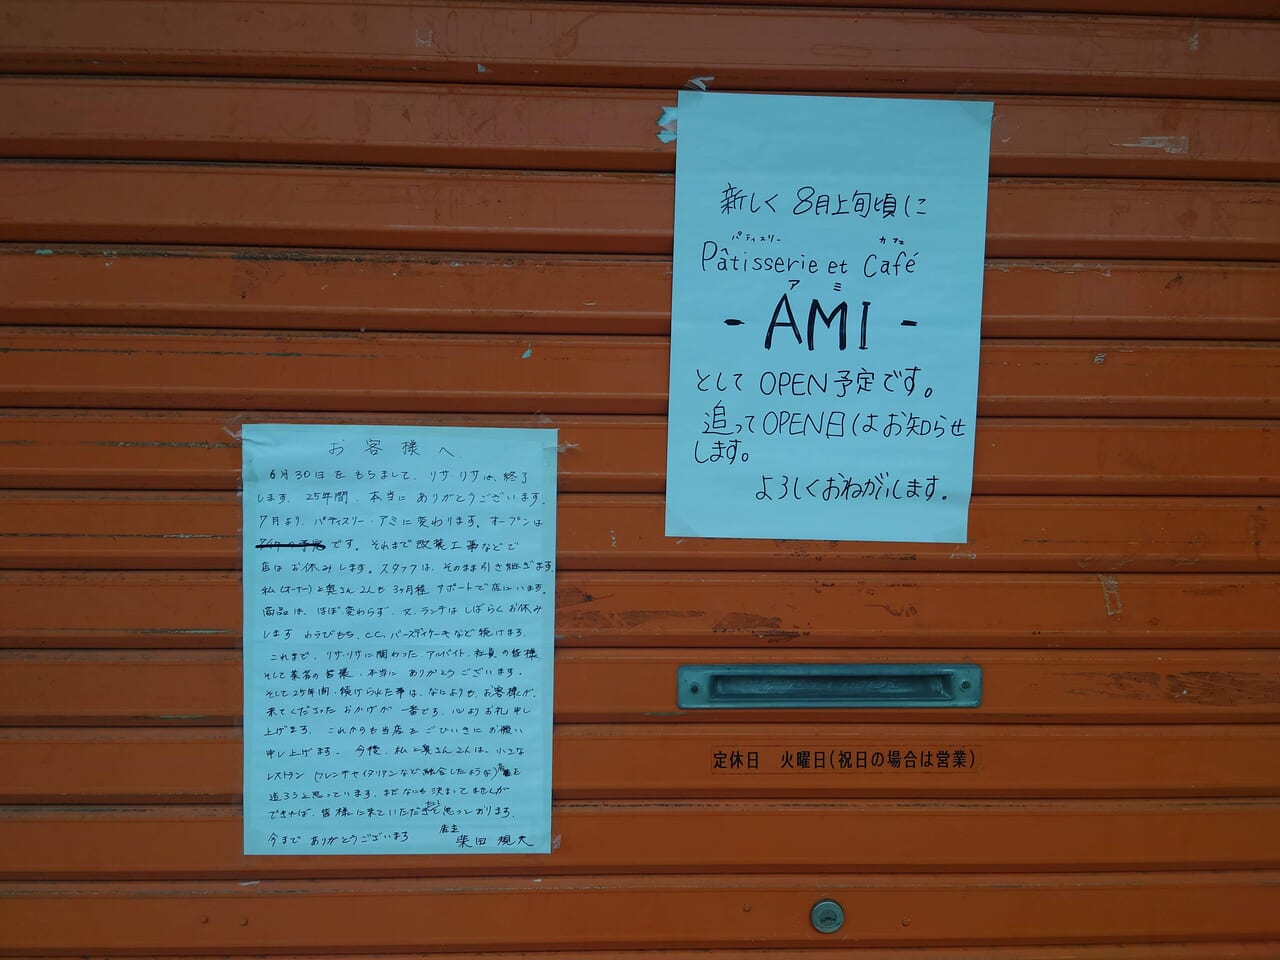 お客様へ
6月30日をもちまして、リサ・リサは、終了
します。25年間、本当にありがとうございます。
7月より、パティスリー・アミに変わります。オープンは
です。それまで改装工事などで
店はお休みします。スタッフは、そのまま引き継ぎます。
私(オーナー)と奥さん2人も3ヶ月程サポートで店にいます。
商品は、ほぼ変わらず、又、ランチはしばらくお休み
します わらびもち、C.C、バースディケーキなど続けます。
これまで、リサ・リサに関わった、アルバイト、社員の皆様、
そして業者の皆様、本当にありがとうございます。
そして25年間、続けられた事は、なによりも、お客様が、
来てくださったおかげが一番です。心よりお礼申し
上げます。これからも当店をごひいきにお願い
申し上げます。今後、私と奥さん2人は、小さな
レストラン(フレンチやイタリアンなど融合したような)店を
造ろうと思っています。まだなにも決まってませんが
できれば、皆様に来ていただきたいと思っております。
今までありがとうございます 店主 柴田
新しく 8月上旬頃に
パティスリー カフェ
Pâtisserie et Café
アミ
- AMI -
として OPEN予定です。
追ってOPEN日はお知らせ
します。
よろしくおねがいします。
定休日 火曜日(祝日の場合は営業)